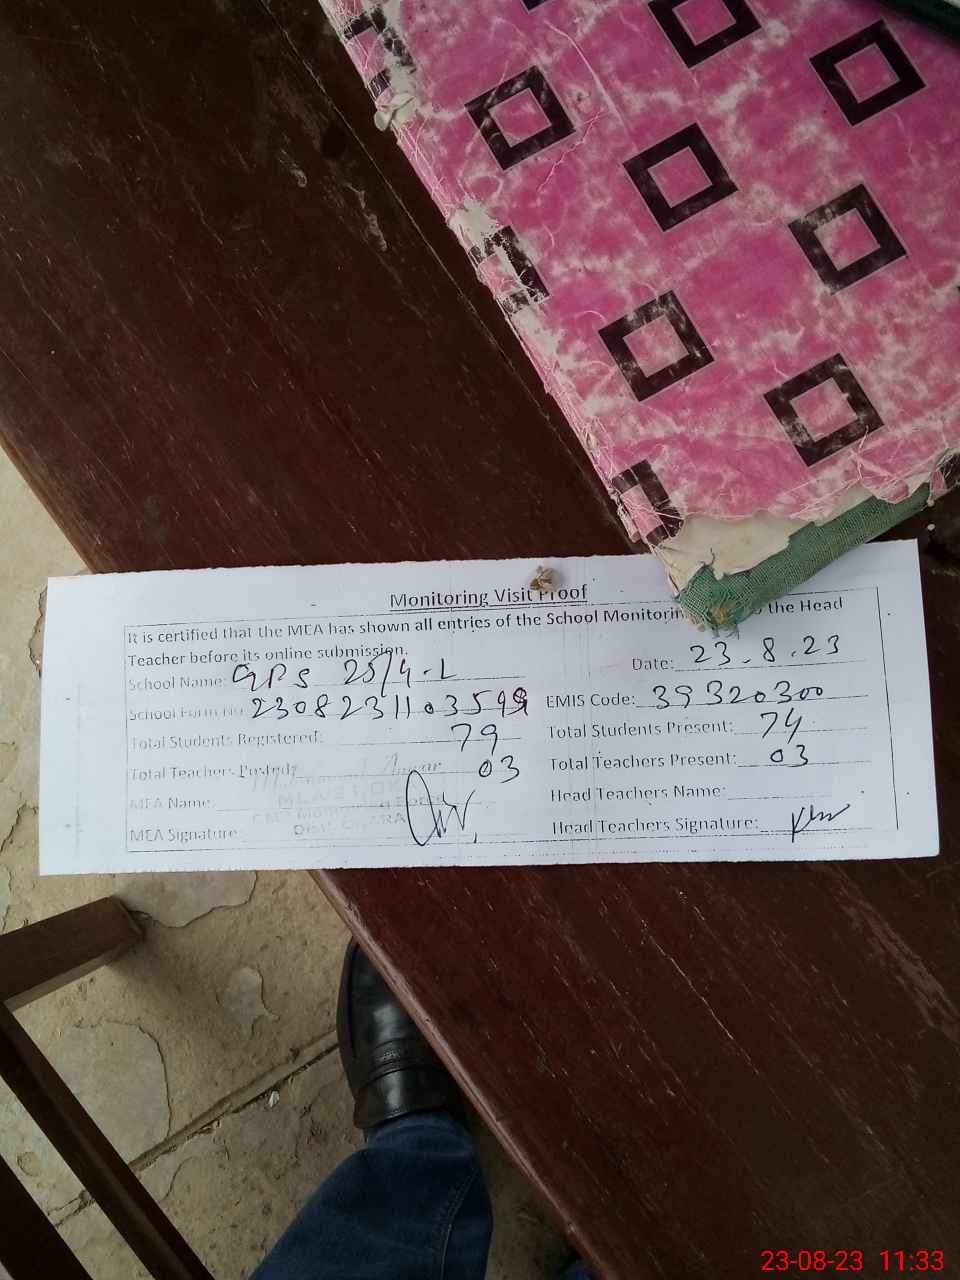 Monitoring Visit Proof
It is certified that the MEA has shown all entries of the School Monitoring the Head
Teacher before its online submission.
School Name: GPS 25/4-L Date: 23.8.23
School Form No 230823110359 EMIS Code: 39320300
Total Students Registered: 79 Total Students Present: 74
Total Teachers Posted: 03 Total Teachers Present: 03
MEA Name: Head Teachers Name:
MEA Signature: Head Teachers Signature:
23-08-23 11:33